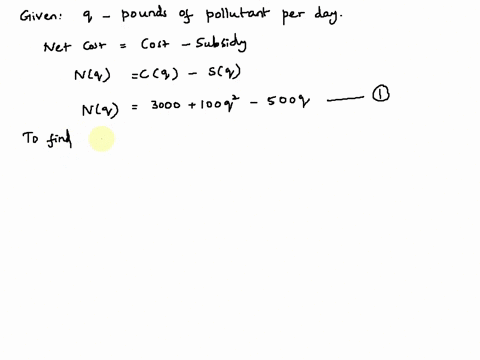 Given: q - pounds of pollutant per day.
Net Cost = Cost - Subsidy
N(q) = C(q) - S(q)
N(q) = 3000 + 100q² - 500q —— ①
To find